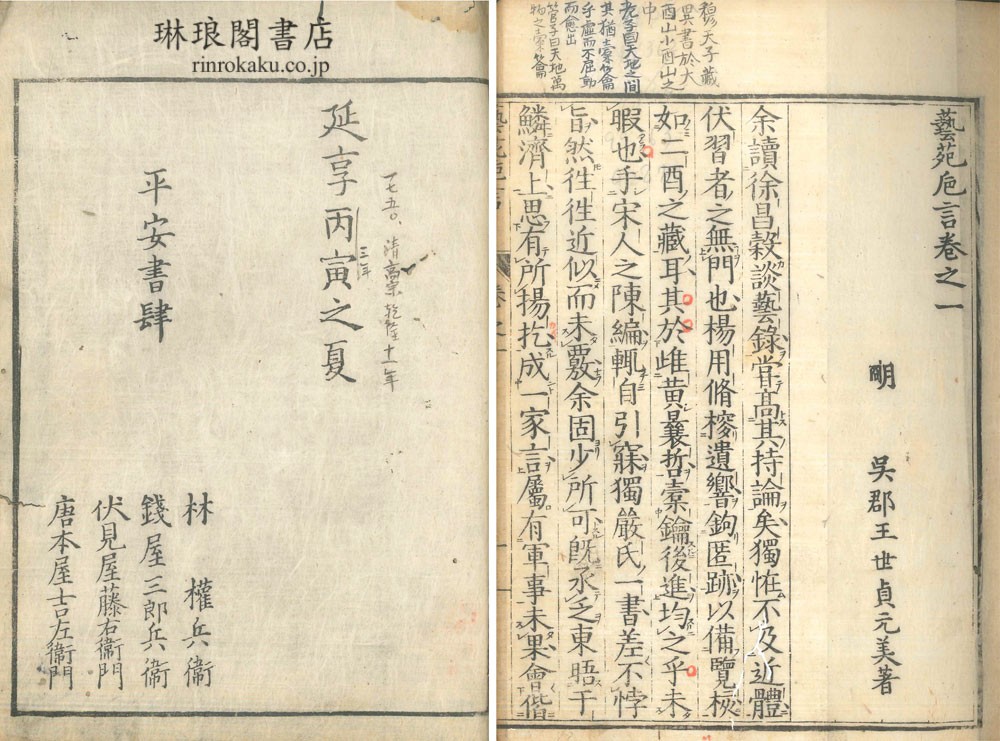 琳琅閣書店
rinrokaku.co.jp
延享丙寅之夏
三年
一七五〇、清高宗乾隆十一年
平安書肆
林 權兵衞
錢屋三郎兵衞
伏見屋藤右衞門
唐本屋吉左衞門
穆天子藏
異書於大
酉山小酉山之
中
老子曰天地之間
其猶橐籥
乎虛而不屈動
而愈出
管子曰天地萬
物之橐籥
藝苑巵言卷之一
明 吳郡王世貞元美著
余讀徐昌穀談藝錄嘗高其持論矣獨恠不及近體
伏習者之無門也楊用脩搜遺響鉤匿跡以備覽核
如二酉之藏耳其於雌黃曩哲橐鑰後進均之乎未
暇也手宋人之陳編輒自引寐獨嚴氏一書差不悖
旨然徃徃近似而未覈余固少所可旣承乏東晤于
鱗濟上思有所揚扢成一家言屬有軍事未果會偕